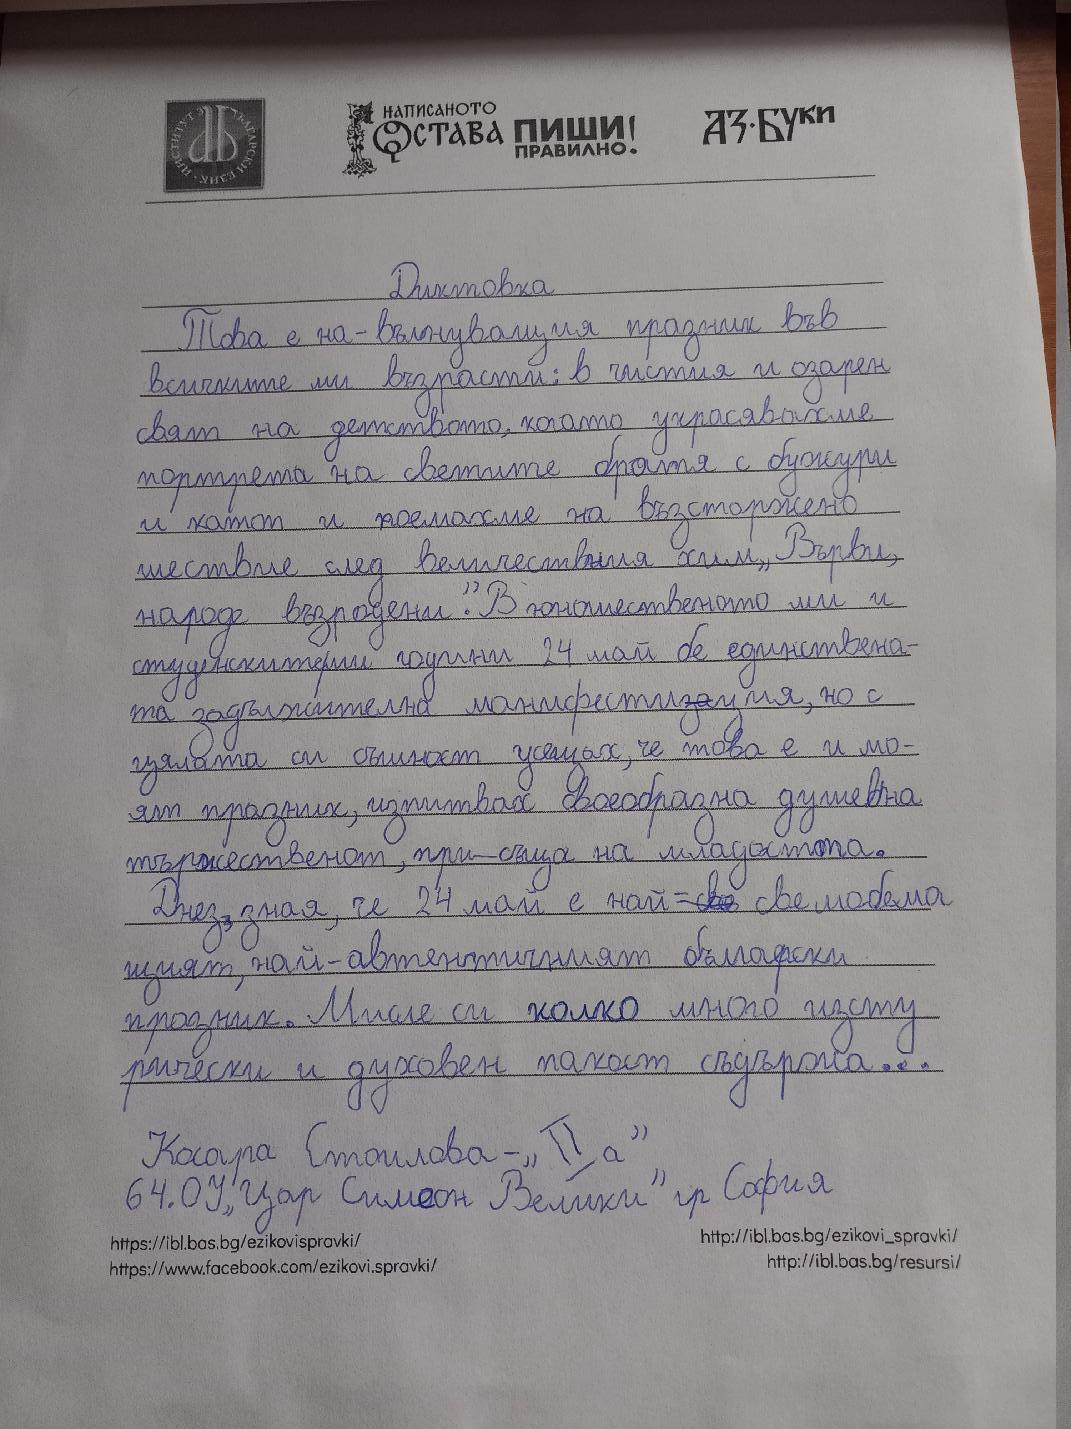 ИНСТИТУТ ЗА БЪЛГАРСКИ ЕЗИК
НАПИСАНОТО
ОСТАВА
ПИШИ!
ПРАВИЛНО.
АЗ·БУКИ
Диктовка
Това е на-вълнуващия празник във
всичките ми възрасти: в чистия и озарен
свят на детството, когато украсявахме
портрета на светите братя с божури
и катот и поемахме на възсторжено
шествие след величествния хим„ Върви,
народе възродени". В юношественото ми и
студенскитери години 24 май бе единствена-
та задължителна манифестизация, но с
цялата си същност усещах, че това е и мо-
ят празник, изпитвах своеобразна душевна
тържественот, при-съща на младостта.
Днез, зная, че 24 май е най= свемобема
щият, най-автентичният български
празник. Мисле си колко много изсту
рически и духовен талост съдържа...
Косара Стоилова-„II а"
64.ОУ„Цар Симеон Велики" гр София
https://ibl.bas.bg/ezikovispravki/
http://ibl.bas.bg/ezikovi_spravki/
https://www.facebook.com/ezikovi.spravki/
http://ibl.bas.bg/resursi/